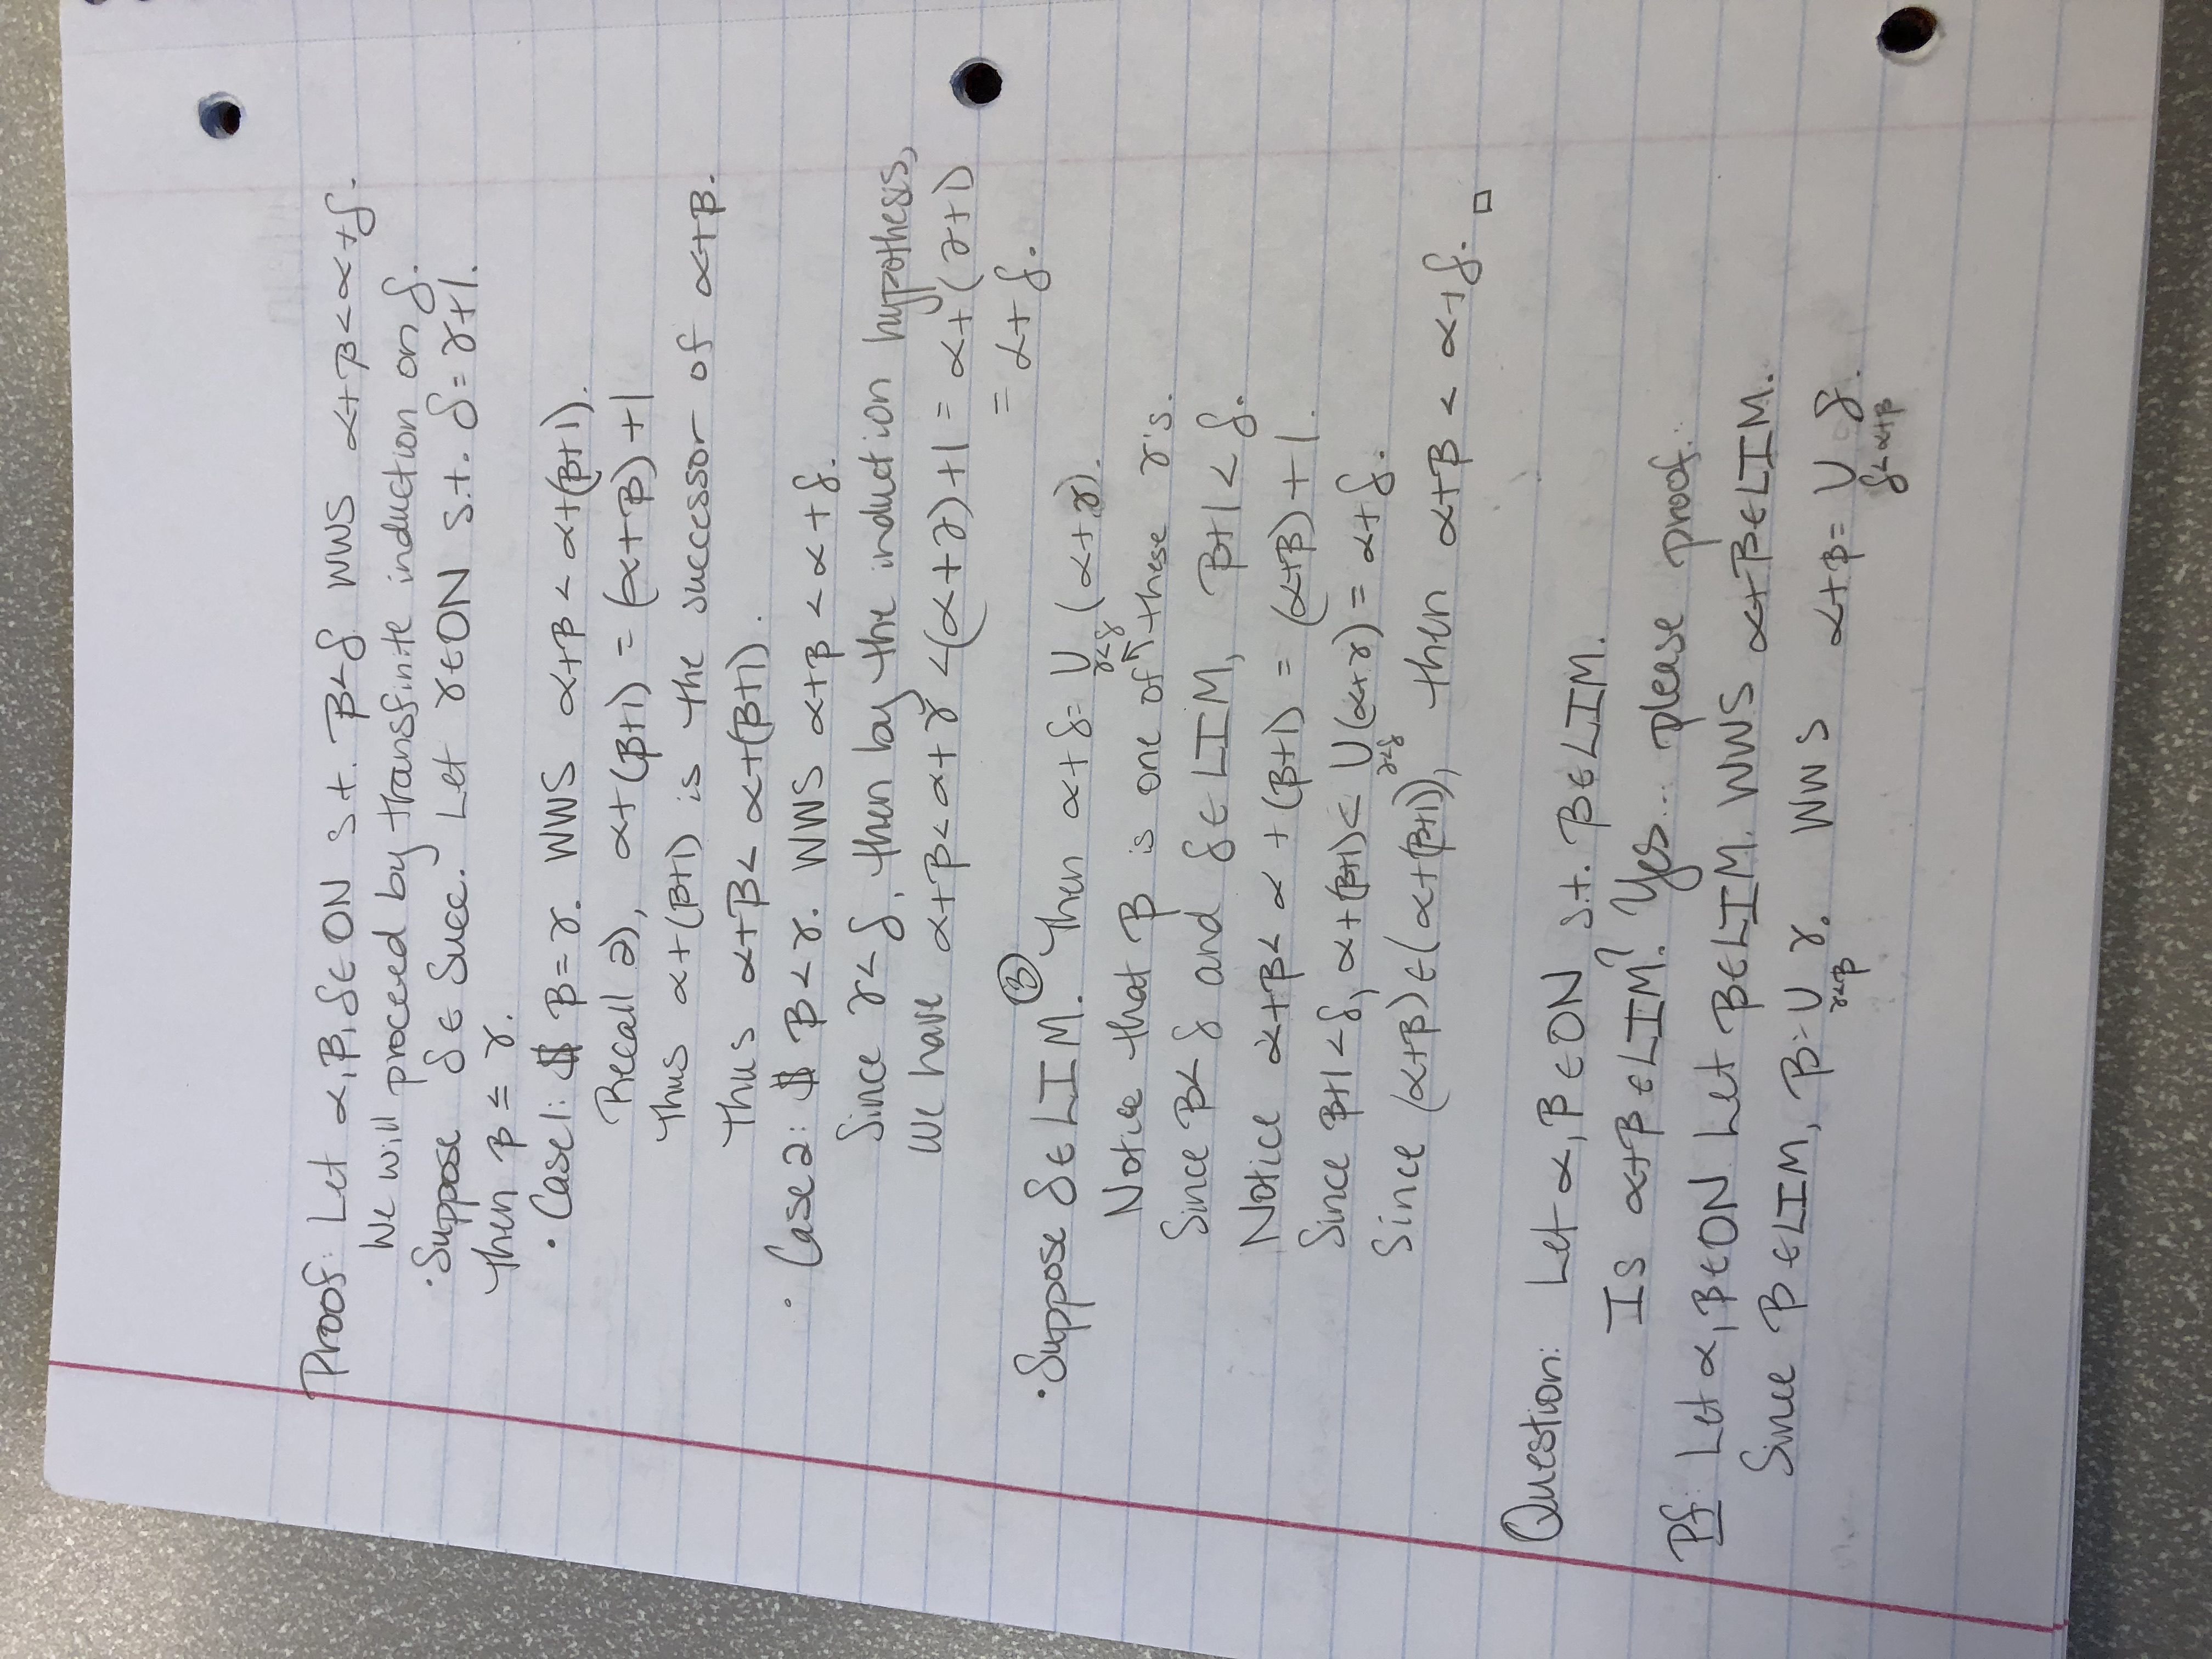 Proof: Let α, β, δ ∈ ON s.t. β < δ WWS α + β < α + δ.
We will proceed by transfinite induction on δ.
• Suppose δ ∈ Succ. Let γ ∈ ON s.t. δ = γ + 1.
Then β ≤ γ.
• Case 1: $ β = γ. WWS α + β < α + (β + 1).
Recall 2), α + (β + 1) = (α + β) + 1
Thus α + (β + 1) is the successor of α + β.
Thus α + β < α + (β + 1).
• Case 2: $ β < γ. WWS α + β < α + δ.
Since γ < δ, then by the induction hypothesis,
We have α + β < α + γ < (α + γ) + 1 = α + (γ + 1)
= α + δ.
• Suppose δ ∈ LIM. ③ Then α + δ = ∪_{γ<δ} (α + γ).
Notice that β is one of ↑ these γ's.
Since β < δ and δ ∈ LIM, β + 1 < δ.
Notice α + β < α + (β + 1) = (α + β) + 1.
Since β + 1 < δ, α + (β + 1) ⊂ ∪_{γ<δ} (α + γ) = α + δ.
Since (α + β) ∈ (α + (β + 1)), then α + β < α + δ. □
Question: Let α, β ∈ ON s.t. β ∈ LIM.
Is α + β ∈ LIM? Yes... please proof.
Pf: Let α, β ∈ ON. Let β ∈ LIM. WWS α + β ∈ LIM.
Since β ∈ LIM, β = ∪_{γ<β} γ. WWS α + β = ∪_{δ<α+β} δ.